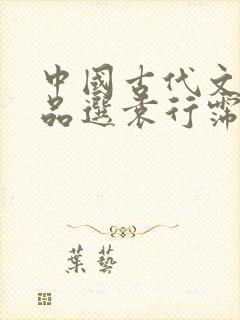 中國古代文
品選袁行霈
葉藝